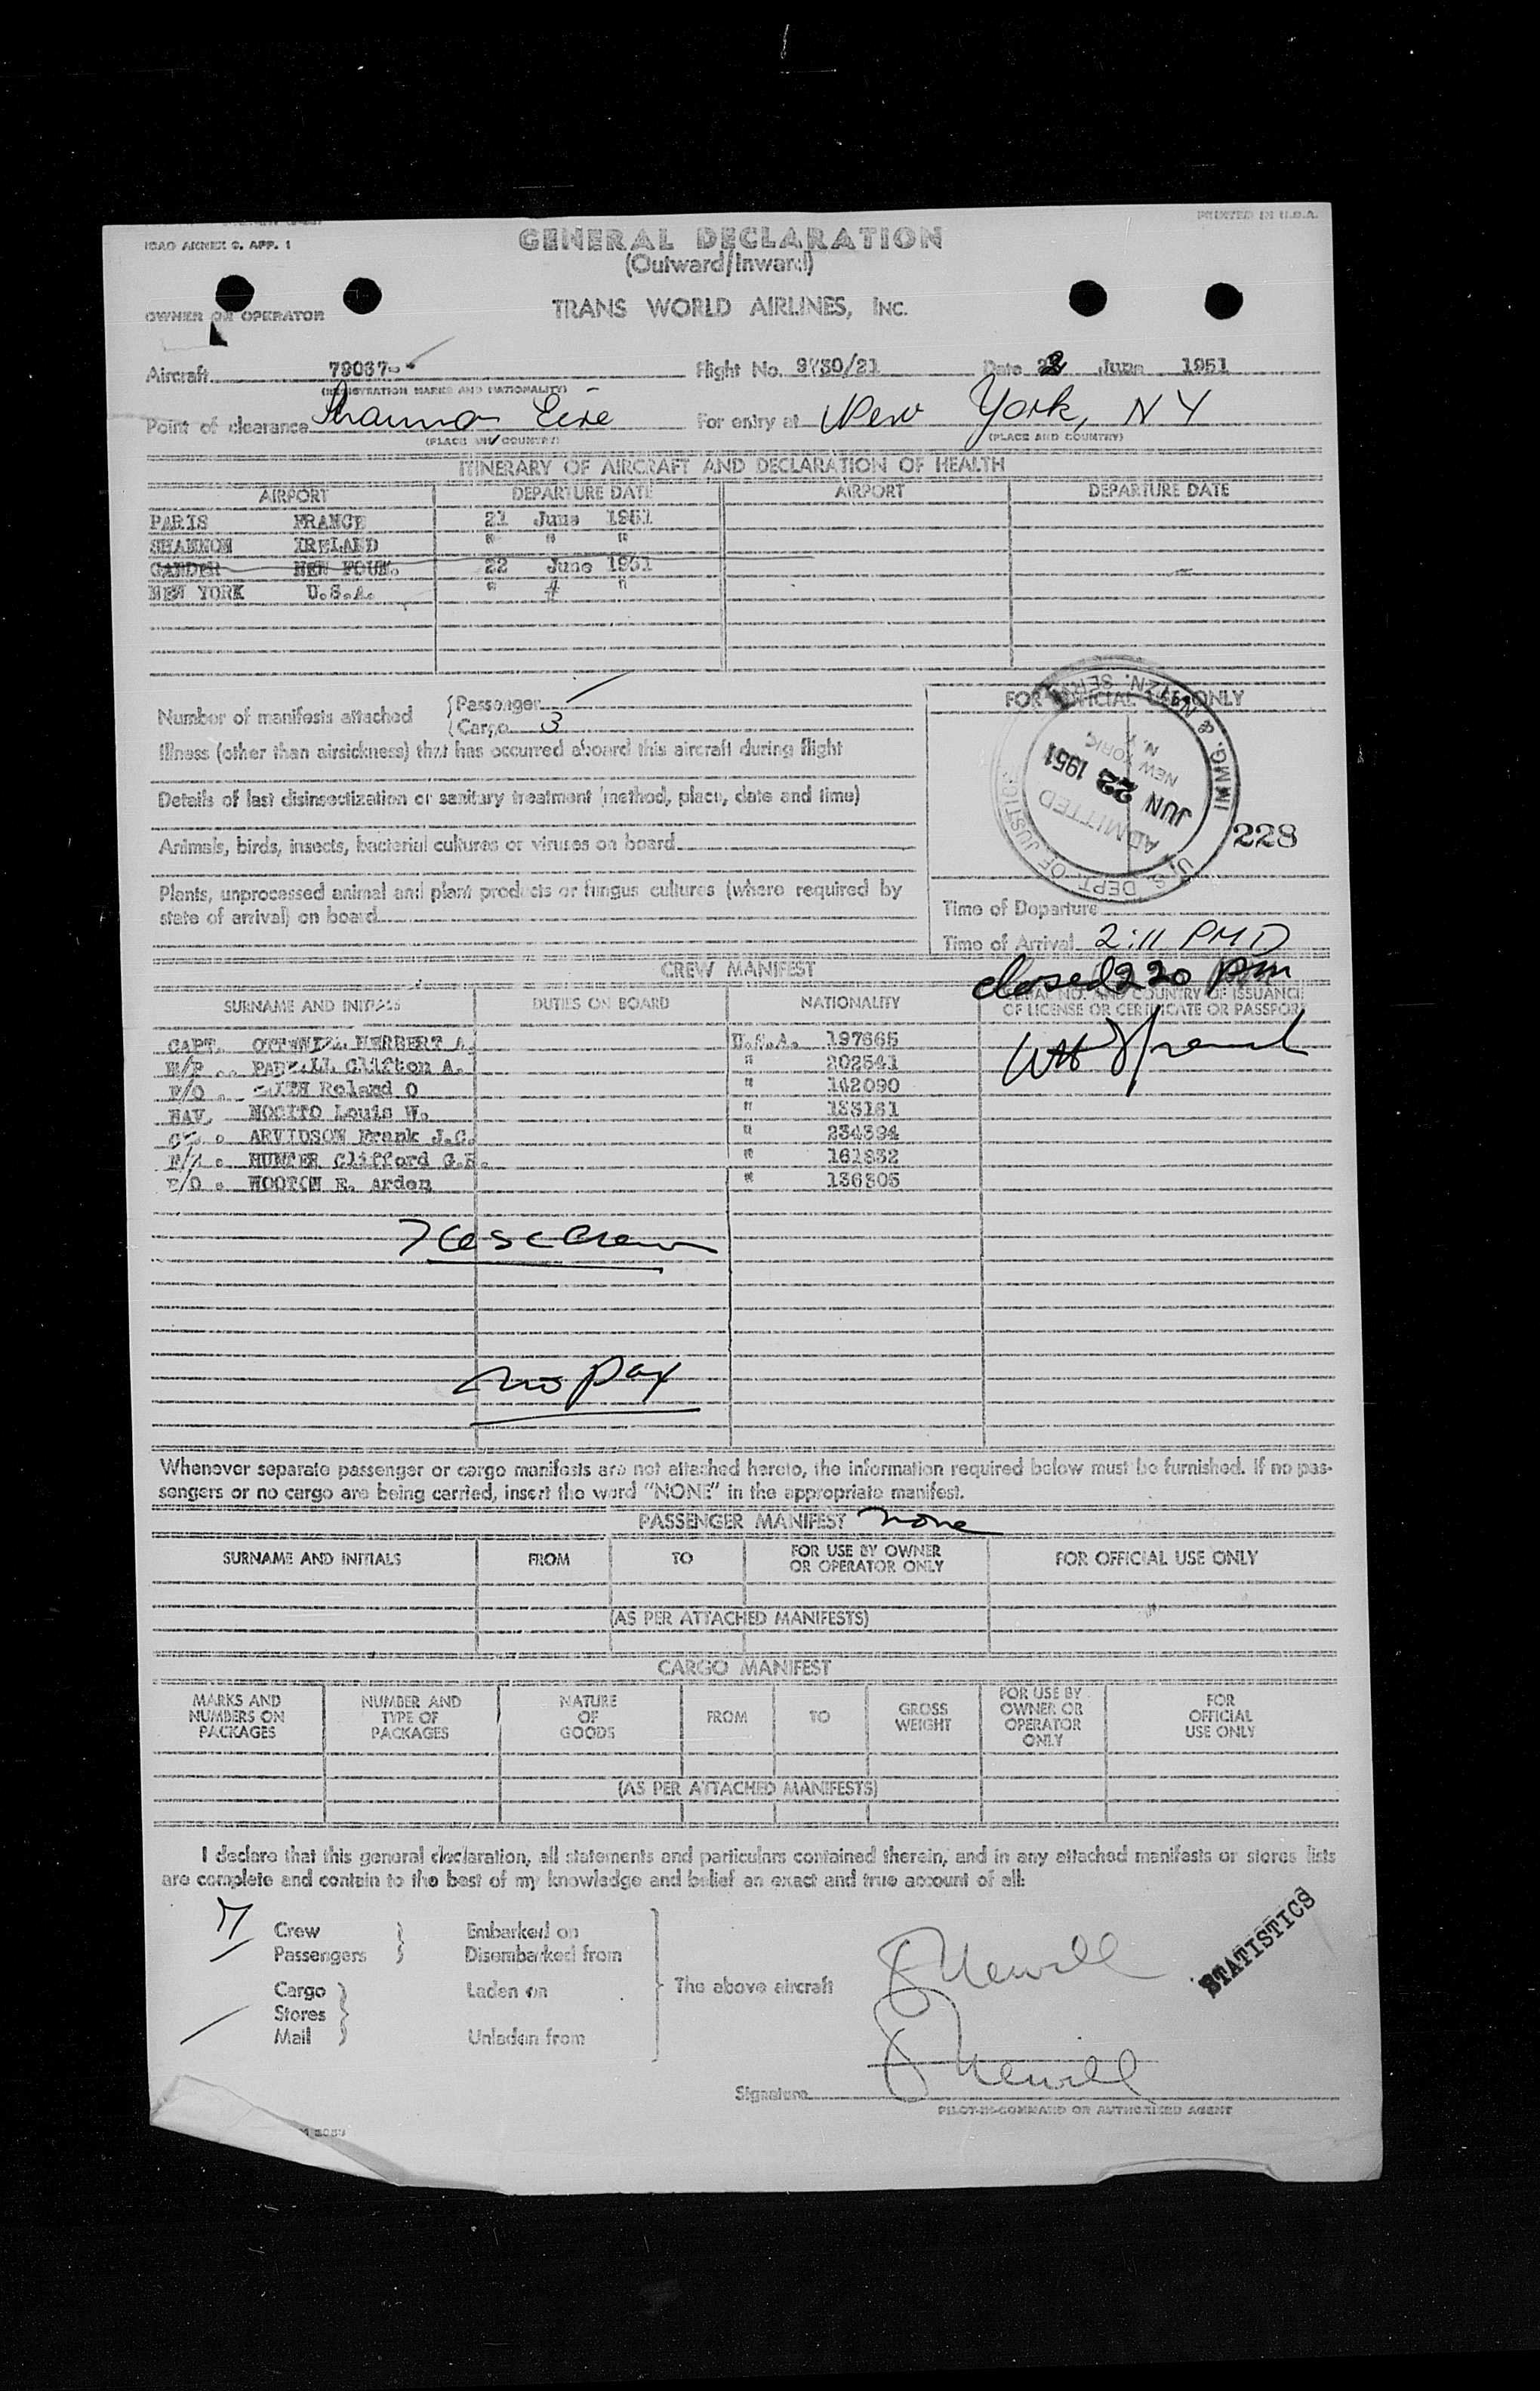 PRINTED IN U.S.A.
ICAO ANNEX 9, APP. 1
GENERAL DECLARATION
(Outward/Inward)
OWNER OR OPERATOR
TRANS WORLD AIRLINES, INC.
Aircraft 79067 Flight No. 9730/21 Date 22 June 1951
(REGISTRATION MARKS AND NATIONALITY)
Point of clearance Shannon Eire For entry at New York, NY
(PLACE AND COUNTRY) (PLACE AND COUNTRY)
ITINERARY OF AIRCRAFT AND DECLARATION OF HEALTH
AIRPORT DEPARTURE DATE AIRPORT DEPARTURE DATE
PARIS FRANCE 21 June 1951
SHANNON IRELAND " " "
GANDER NEW FOUN. 22 June 1951
NEW YORK U.S.A. " " "
Number of manifests attached
Passenger
Cargo 3
FOR OFFICIAL USE ONLY
Illness (other than airsickness) that has occurred aboard this aircraft during flight
Details of last disinsectization or sanitary treatment (method, place, date and time)
Animals, birds, insects, bacterial cultures or viruses on board
Plants, unprocessed animal and plant products or fungus cultures (where required by
state of arrival) on board
U.S. DEPT. OF JUSTICE
IMMG. & NATZN. SERV.
ADMITTED
JUN 22 1951
NEW YORK,
N. Y.
228
Time of Departure
Time of Arrival 2:11 PM D
closed 220 pm
CREW MANIFEST
SURNAME AND INITIALS DUTIES ON BOARD NATIONALITY SERIAL NO. AND COUNTRY OF ISSUANCE
OF LICENSE OR CERTIFICATE OR PASSPORT
CAPT. HERBERT A. U.S.A. 197665
Clifton A. " 202541
F/O . Roland O " 142090
NAV. NOCITO Louis W. " 133161
ARVIDSON Frank J.C. " 234394
HUNTER Clifford G.E. " 161832
WOOTON E. Arden " 136305
7 Crew
no pax
Whenever separate passenger or cargo manifests are not attached hereto, the information required below must be furnished. If no pas-
sengers or no cargo are being carried, insert the word "NONE" in the appropriate manifest.
PASSENGER MANIFEST none
SURNAME AND INITIALS FROM TO FOR USE BY OWNER
OR OPERATOR ONLY FOR OFFICIAL USE ONLY
(AS PER ATTACHED MANIFESTS)
CARGO MANIFEST
MARKS AND
NUMBERS ON
PACKAGES
NUMBER AND
TYPE OF
PACKAGES
NATURE
OF
GOODS
FROM
TO
GROSS
WEIGHT
FOR USE BY
OWNER OR
OPERATOR
ONLY
FOR
OFFICIAL
USE ONLY
(AS PER ATTACHED MANIFESTS)
I declare that this general declaration, all statements and particulars contained therein, and in any attached manifests or stores lists
are complete and contain to the best of my knowledge and belief an exact and true account of all:
7 Crew Embarked on
Passengers Disembarked from
Cargo Laden on The above aircraft
Stores
Mail Unladen from
STATISTICS
Signature
PILOT-IN-COMMAND OR AUTHORIZED AGENT